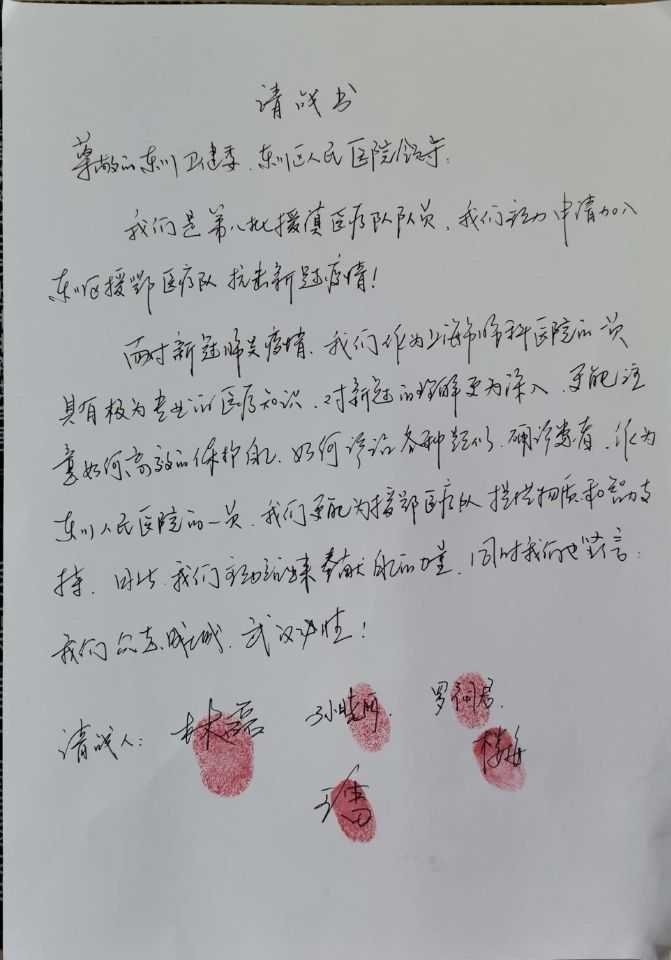 请战书
尊敬的东川卫健委、东川区人民医院领导:
我们是第八批援滇医疗队队员,我们主动申请加入
东川区援鄂医疗队抗击新冠疫情!
面对新冠肺炎疫情,我们作为上海市肺科医院的一员
具有极为专业的医疗知识,对新冠的理解更为深入,更能注
意如何高效的保护自己,如何诊治各种疑似、确诊患者,作为
东川人民医院的一员,我们更能为援鄂医疗队提供物质和智力支
持,因此,我们主动站出来奉献自己的力量,同时我们也坚信:
我们众志成城,武汉必胜!
请战人: 林磊 孙晓丽 罗